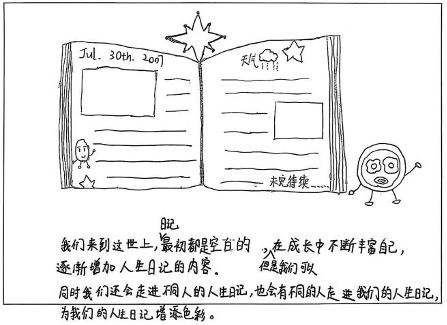 Jul. 30th. 2007
天气
未完待续……
日记
我们来到这世上,最初都是空白的,在成长中不断丰富自己,
但是我们可以
逐渐增加人生日记的内容.
同时我们还会走进不同人的人生日记,也会有不同的人走进我们的人生日记,
为我们的人生日记增添色彩.